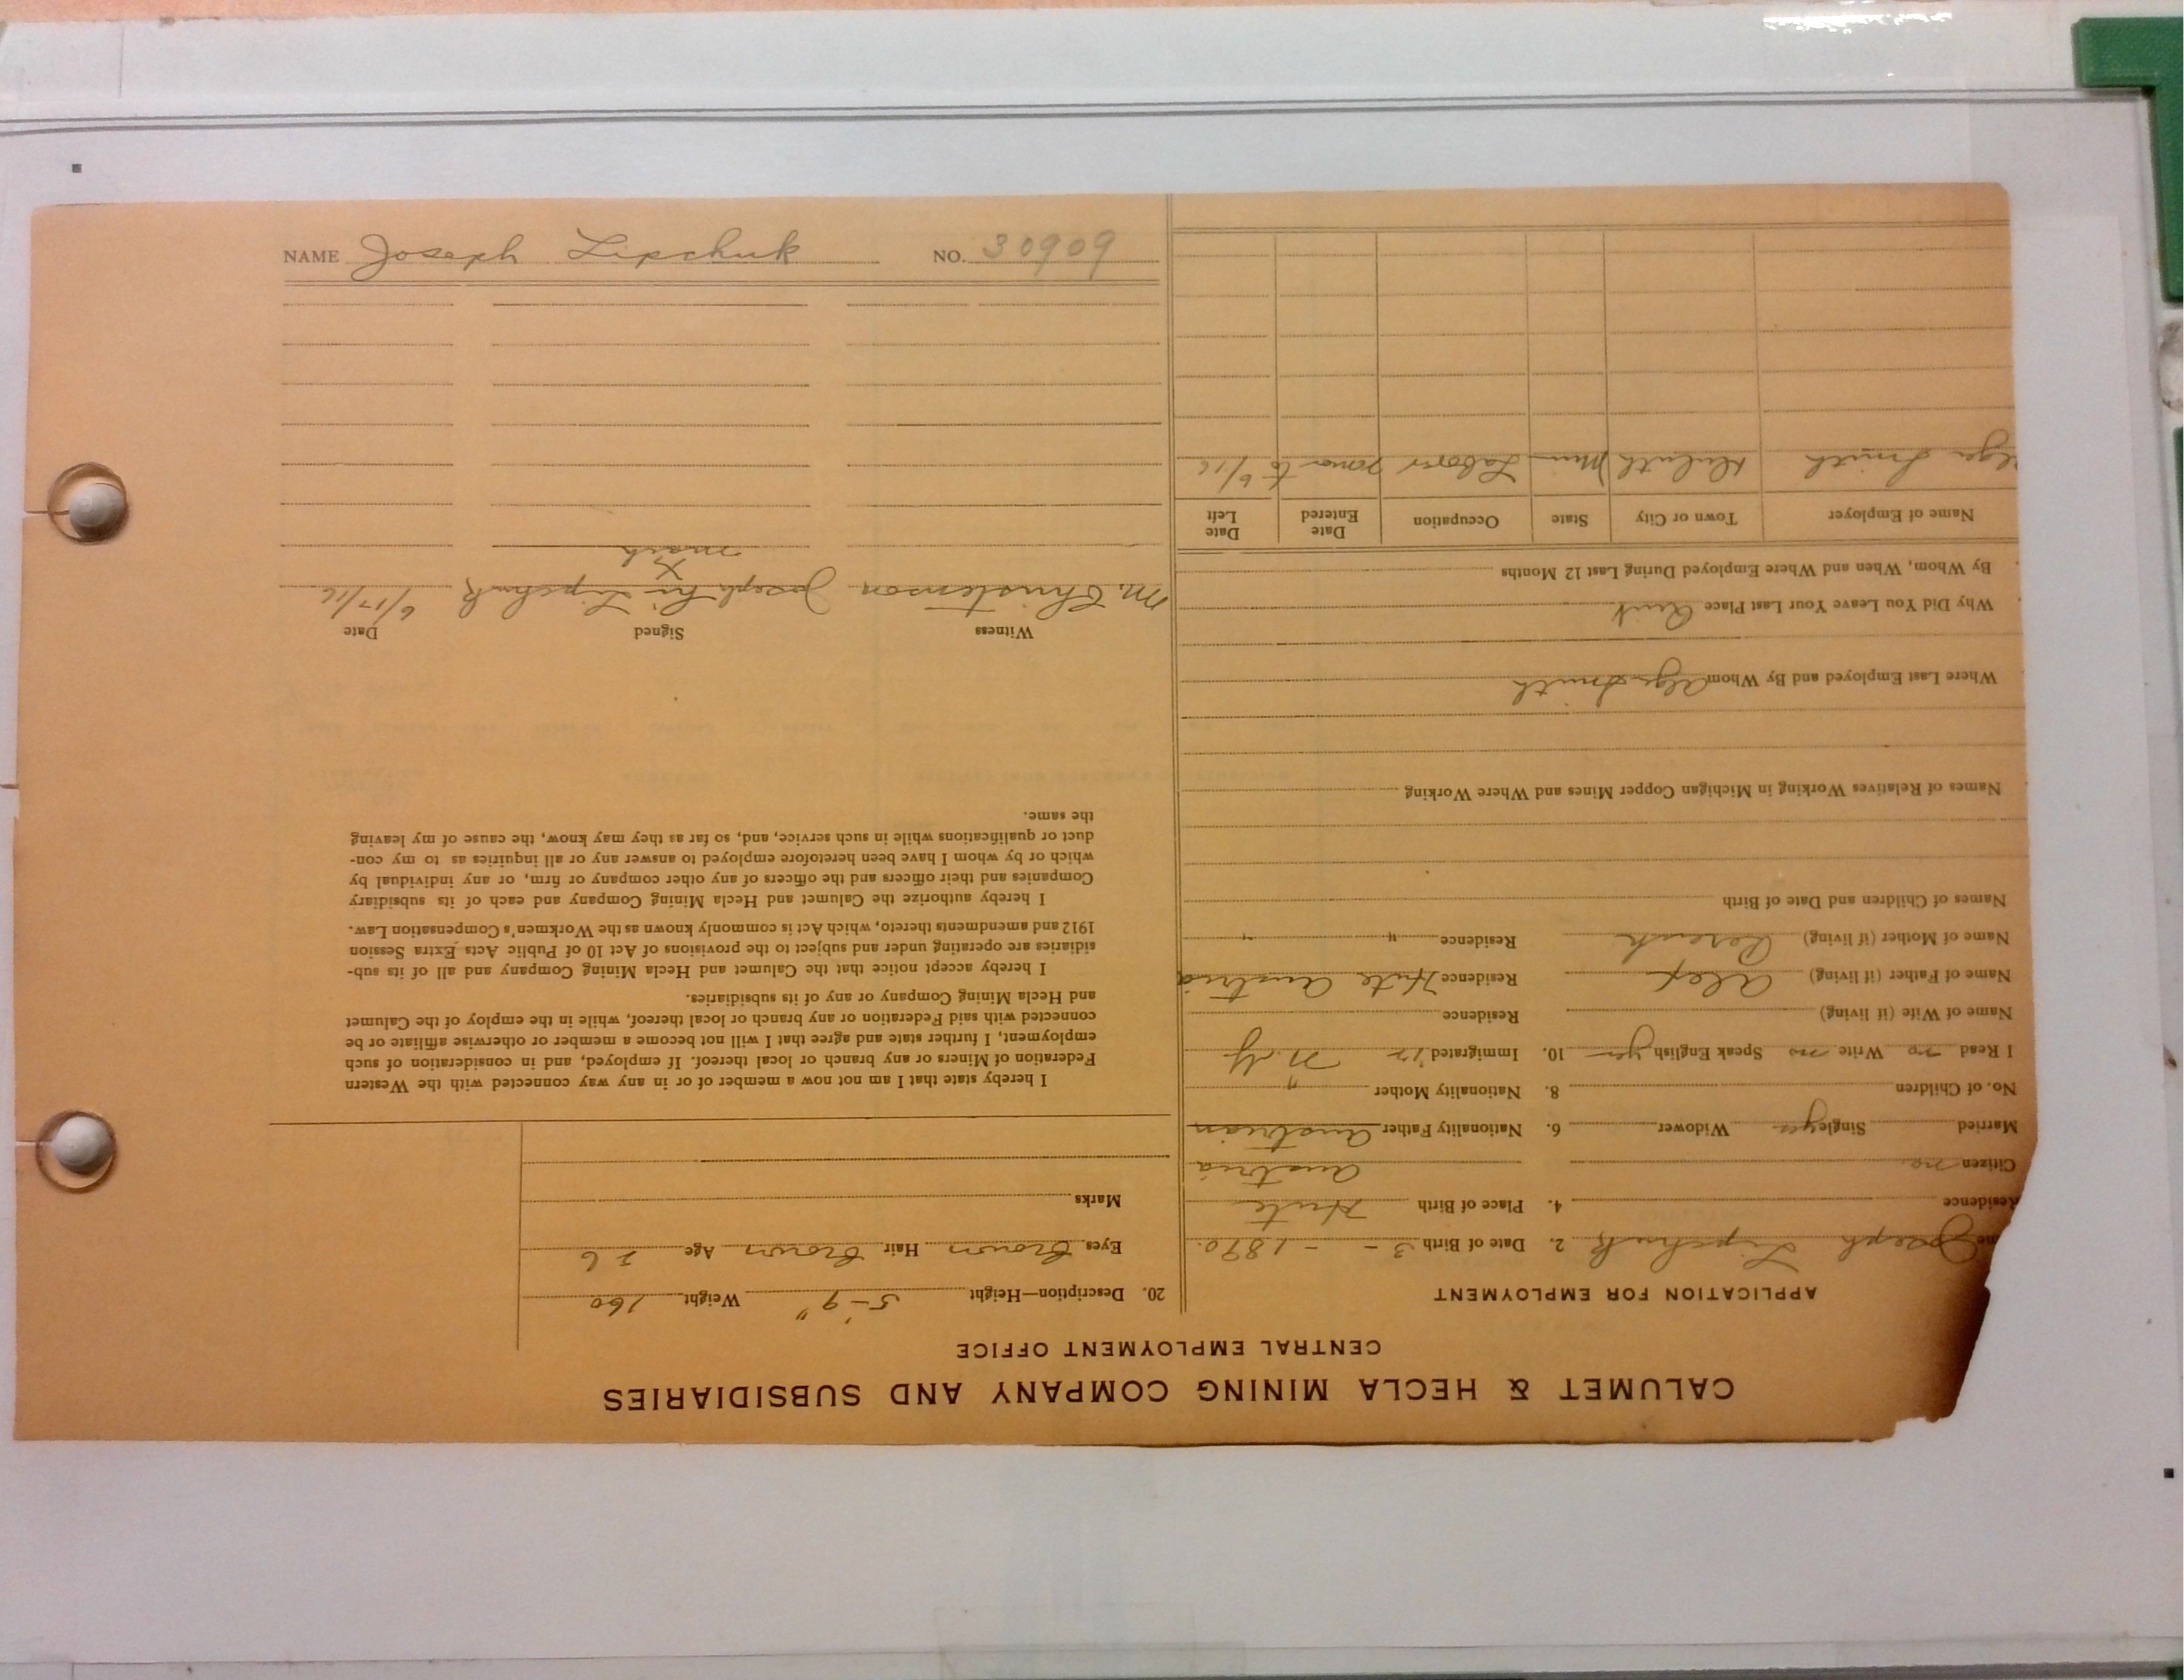 NAME Joseph Lipchuk NO. 30909
CALUMET & HECLA MINING COMPANY AND SUBSIDIARIES
CENTRAL EMPLOYMENT OFFICE
APPLICATION FOR EMPLOYMENT
me Joseph Lipchuk 2. Date of Birth 3 - - 1890.
Residence 4. Place of Birth Hute
Citizen no. Austria
Married Single yes Widower 6. Nationality Father Austrian
No. of Children 8. Nationality Mother "
I Read no Write no Speak English yes 10. Immigrated '12 N.Y.
Name of Wife (if living) Residence
Name of Father (if living) Alex Residence Hute Austria
Name of Mother (if living) Residence " "
Names of Children and Date of Birth
Names of Relatives Working in Michigan Copper Mines and Where Working
Where Last Employed and By Whom Alger Smith
Why Did You Leave Your Last Place Quit
By Whom, When and Where Employed During Last 12 Months
Name of Employer Town or City State Occupation Date Entered Date Left
lger Smith Duluth Minn Laborer to 6/16
20. Description—Height 5'-9" Weight 160
Eyes Brown Hair Brown Age 26
Marks
I hereby state that I am not now a member of or in any way connected with the Western
Federation of Miners or any branch or local thereof. If employed, and in consideration of such
employment, I further state and agree that I will not become a member or otherwise affiliate or be
connected with said Federation or any branch or local thereof, while in the employ of the Calumet
and Hecla Mining Company or any of its subsidiaries.
I hereby accept notice that the Calumet and Hecla Mining Company and all of its sub-
sidiaries are operating under and subject to the provisions of Act 10 of Public Acts Extra Session
1912 and amendments thereto, which Act is commonly known as the Workmen's Compensation Law.
I hereby authorize the Calumet and Hecla Mining Company and each of its subsidiary
Companies and their officers and the officers of any other company or firm, or any individual by
which or by whom I have been heretofore employed to answer any or all inquiries as to my con-
duct or qualifications while in such service, and, so far as they may know, the cause of my leaving
the same.
Witness Signed Date
M. Christenson Joseph his Lipchuk 6/17/16
X
mark